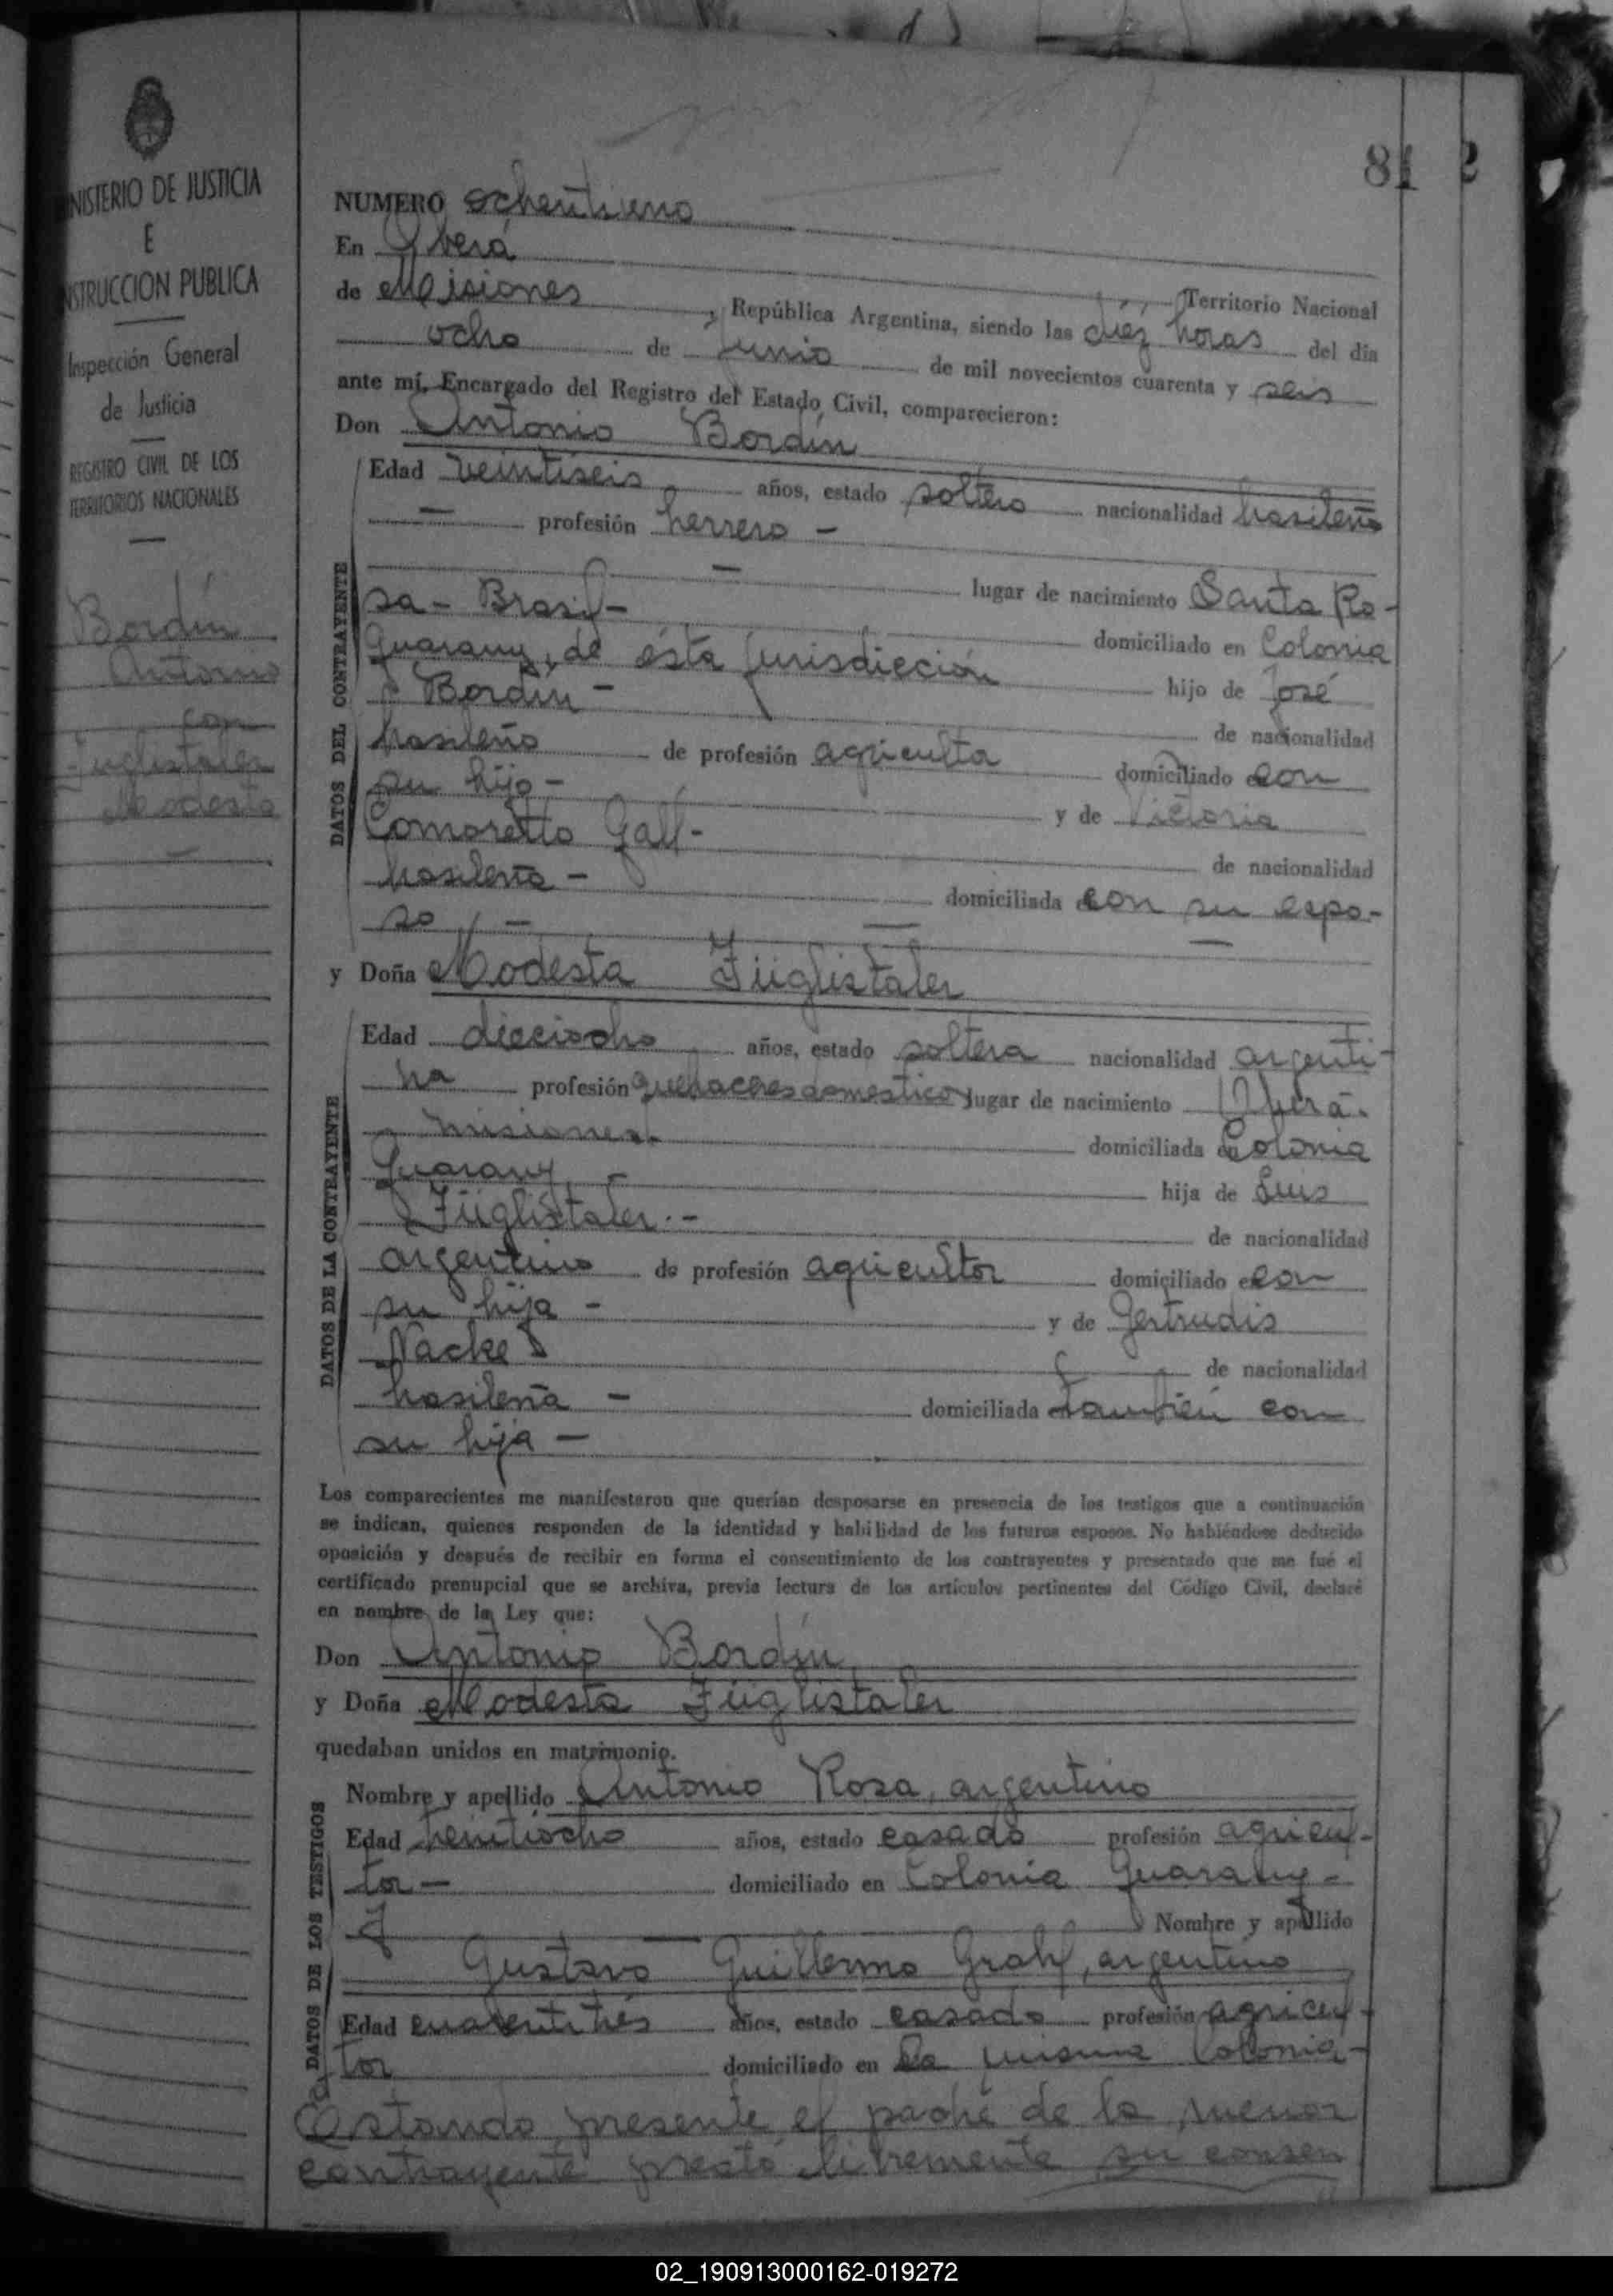 81 2
MINISTERIO DE JUSTICIA
E
INSTRUCCION PUBLICA
Inspección General
de Justicia
REGISTRO CIVIL DE LOS
TERRITORIOS NACIONALES
Bordín
Antonio
con
Füglistaler
Modesta
NUMERO ochentiuno
En Oberá
Territorio Nacional
de Misiones, República Argentina, siendo las diez horas del día
ocho de junio de mil novecientos cuarenta y seis
ante mí, Encargado del Registro del Estado Civil, comparecieron:
Don Antonio Bordín
DATOS DEL CONTRAYENTE
Edad veintiseis años, estado soltero nacionalidad brasileño
— profesión herrero —
— lugar de nacimiento Santa Ro-
sa - Brasil - domiciliado en Colonia
Guarany, de ésta jurisdicción hijo de José
Bordín - de nacionalidad
brasileño de profesión agriculta domiciliado con
su hijo - y de Victoria
Comoretto Gall - de nacionalidad
brasileña - domiciliada con su espo-
so —
y Doña Modesta Füglistaler
DATOS DE LA CONTRAYENTE
Edad dieciocho años, estado soltera nacionalidad argenti-
na profesión quehaceres domestico lugar de nacimiento Oberá.
misiones. domiciliada en Colonia
Guarany - hija de Luis
Füglistaler. - de nacionalidad
argentino de profesión agricultor domiciliado con
su hija - y de Gertrudis
Nacke de nacionalidad
brasileña - domiciliada también con
su hija -
Los comparecientes me manifestaron que querían desposarse en presencia de los testigos que a continuación
se indican, quienes responden de la identidad y habilidad de los futuros esposos. No habiéndose deducido
oposición y después de recibir en forma el consentimiento de los contrayentes y presentado que me fué el
certificado prenupcial que se archiva, previa lectura de los artículos pertinentes del Código Civil, declaré
en nombre de la Ley que:
Don Antonio Bordín
y Doña Modesta Füglistaler
quedaban unidos en matrimonio.
DATOS DE LOS TESTIGOS
Nombre y apellido Antonio Rosa, argentino
Edad veintiocho años, estado casado profesión agricul-
tor - domiciliado en Colonia Guarany -
y Nombre y apellido
Gustavo Guillermo Grahl, argentino
Edad cuarentitrés años, estado casado profesión agricul-
tor domiciliado en la misma Colonia -
Estando presente el padre de la menor
contrayente prestó libremente su consen
02_190913000162-019272